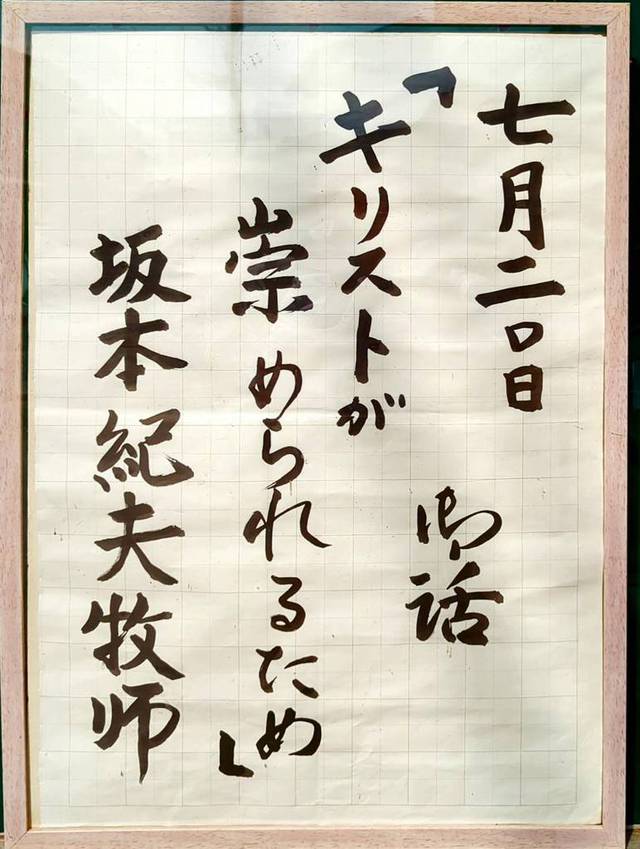 七月二〇日
御話
「キリストが
崇められるため」
坂本紀夫牧師